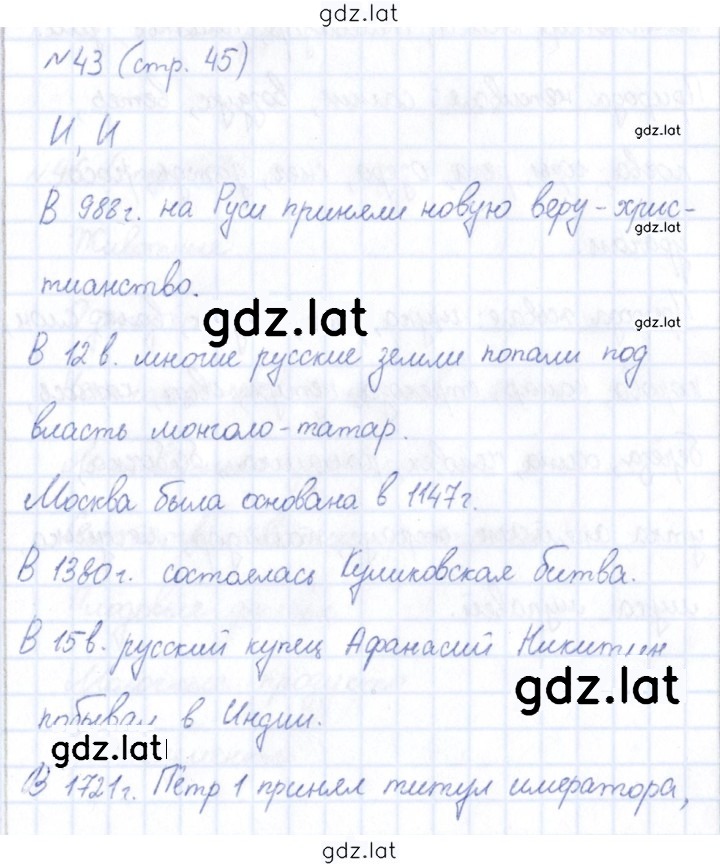 gdz.lat
№43 (стр. 45)
И, И
gdz.lat
В 988г. на Руси приняли новую веру - хрис-
gdz.lat
тианство.
gdz.lat
gdz.lat
В 12 в. многие русские земли попали под
власть монголо-татар.
Москва была основана в 1147г.
В 1380г. состоялась Куликовская битва.
В 15в. русский купец Афанасий Никитин
gdz.lat
побывал в Индии.
gdz.lat
В 1721г. Пётр 1 принял титул имератора,
gdz.lat